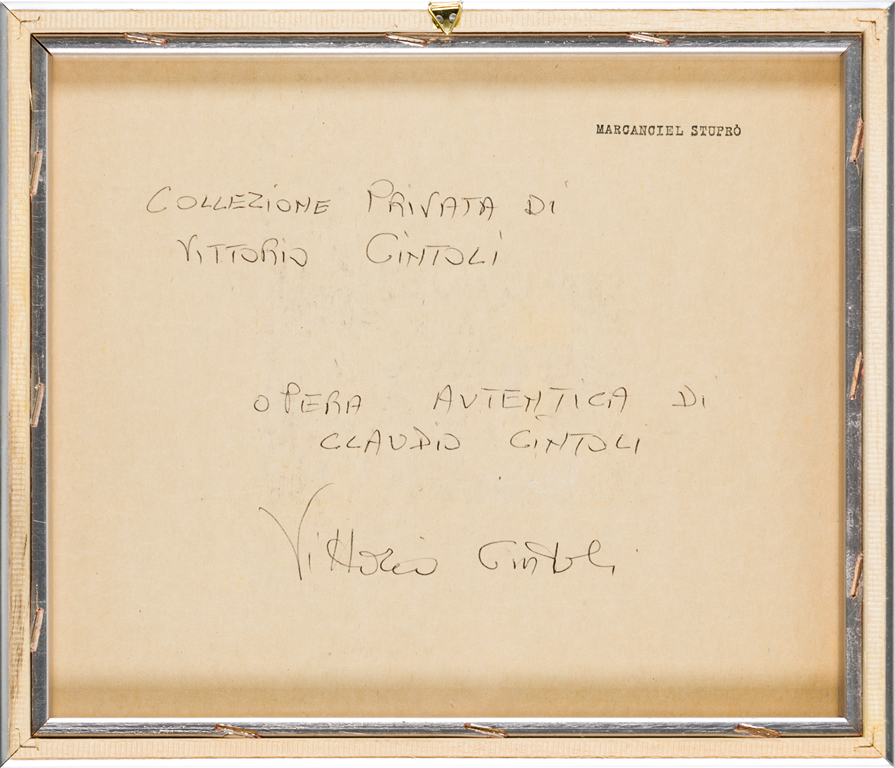 MARCANCIEL STUPRÒ
COLLEZIONE PRIVATA DI
VITTORIO CINTOLI
OPERA AUTENTICA DI
CLAUDIO CINTOLI
Vittorio Cintoli